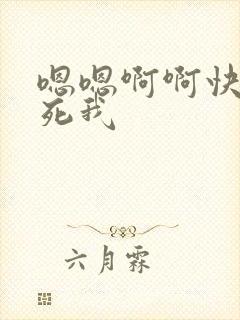 嗯嗯啊啊快
死我
六月霖